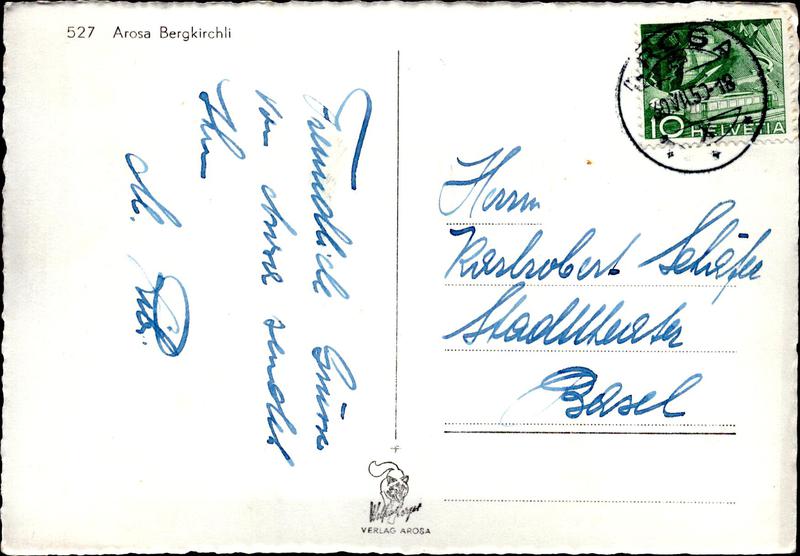 527 Arosa Bergkirchli
Freundliche Grüsse
von Arosa sendet
Ihr
M.
AROSA
50-18
10 HELVETIA
Herrn
Karlrobert Schäfer
Stadttheater
Basel
VERLAG AROSA